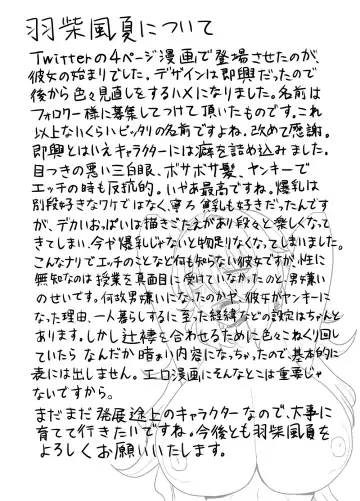 羽柴風夏について
Twitterの4ページ漫画で登場させたのが、
彼女の始まりでした。デザインは即興だったので
後から色々見直しをするハメになりました。名前は
フォロワー様に募集してつけて頂いたものです。これ
以上ないくらいピッタリの名前ですよね。改めて感謝。
即興とはいえキャラクターには癖を詰め込みました。
目つきの悪い三白眼、ボサボサ髪、ヤンキーで
エッチの時も反抗的。いやぁ最高ですね。爆乳は
別段好きなワケではなく、寧ろ貧乳も好きだったんです
が、デカいおっぱいは描きごたえがあり段々と楽しくなって
きてしまい、今や爆乳じゃないと物足りなくなってしまいました。
こんなナリでエッチのことなど何も知らない彼女ですが、性に
無知なのは授業を真面目に受けていなかったのと、男嫌い
のせいです。何故男嫌いになったのかや、彼女がヤンキーに
なった理由、一人暮らしするに至った経緯などの設定はちゃんと
あります。しかし辻褄を合わせるために色々こねくり回し
ていたらなんだか暗い内容になっちゃったので、基本的に
表には出しません。エロ漫画にそんなとこは重要じゃ
ないですから。
まだまだ発展途上のキャラクターなので、大事に
育てて行きたいですね。今後とも羽柴風夏を
よろしくお願いいたします。